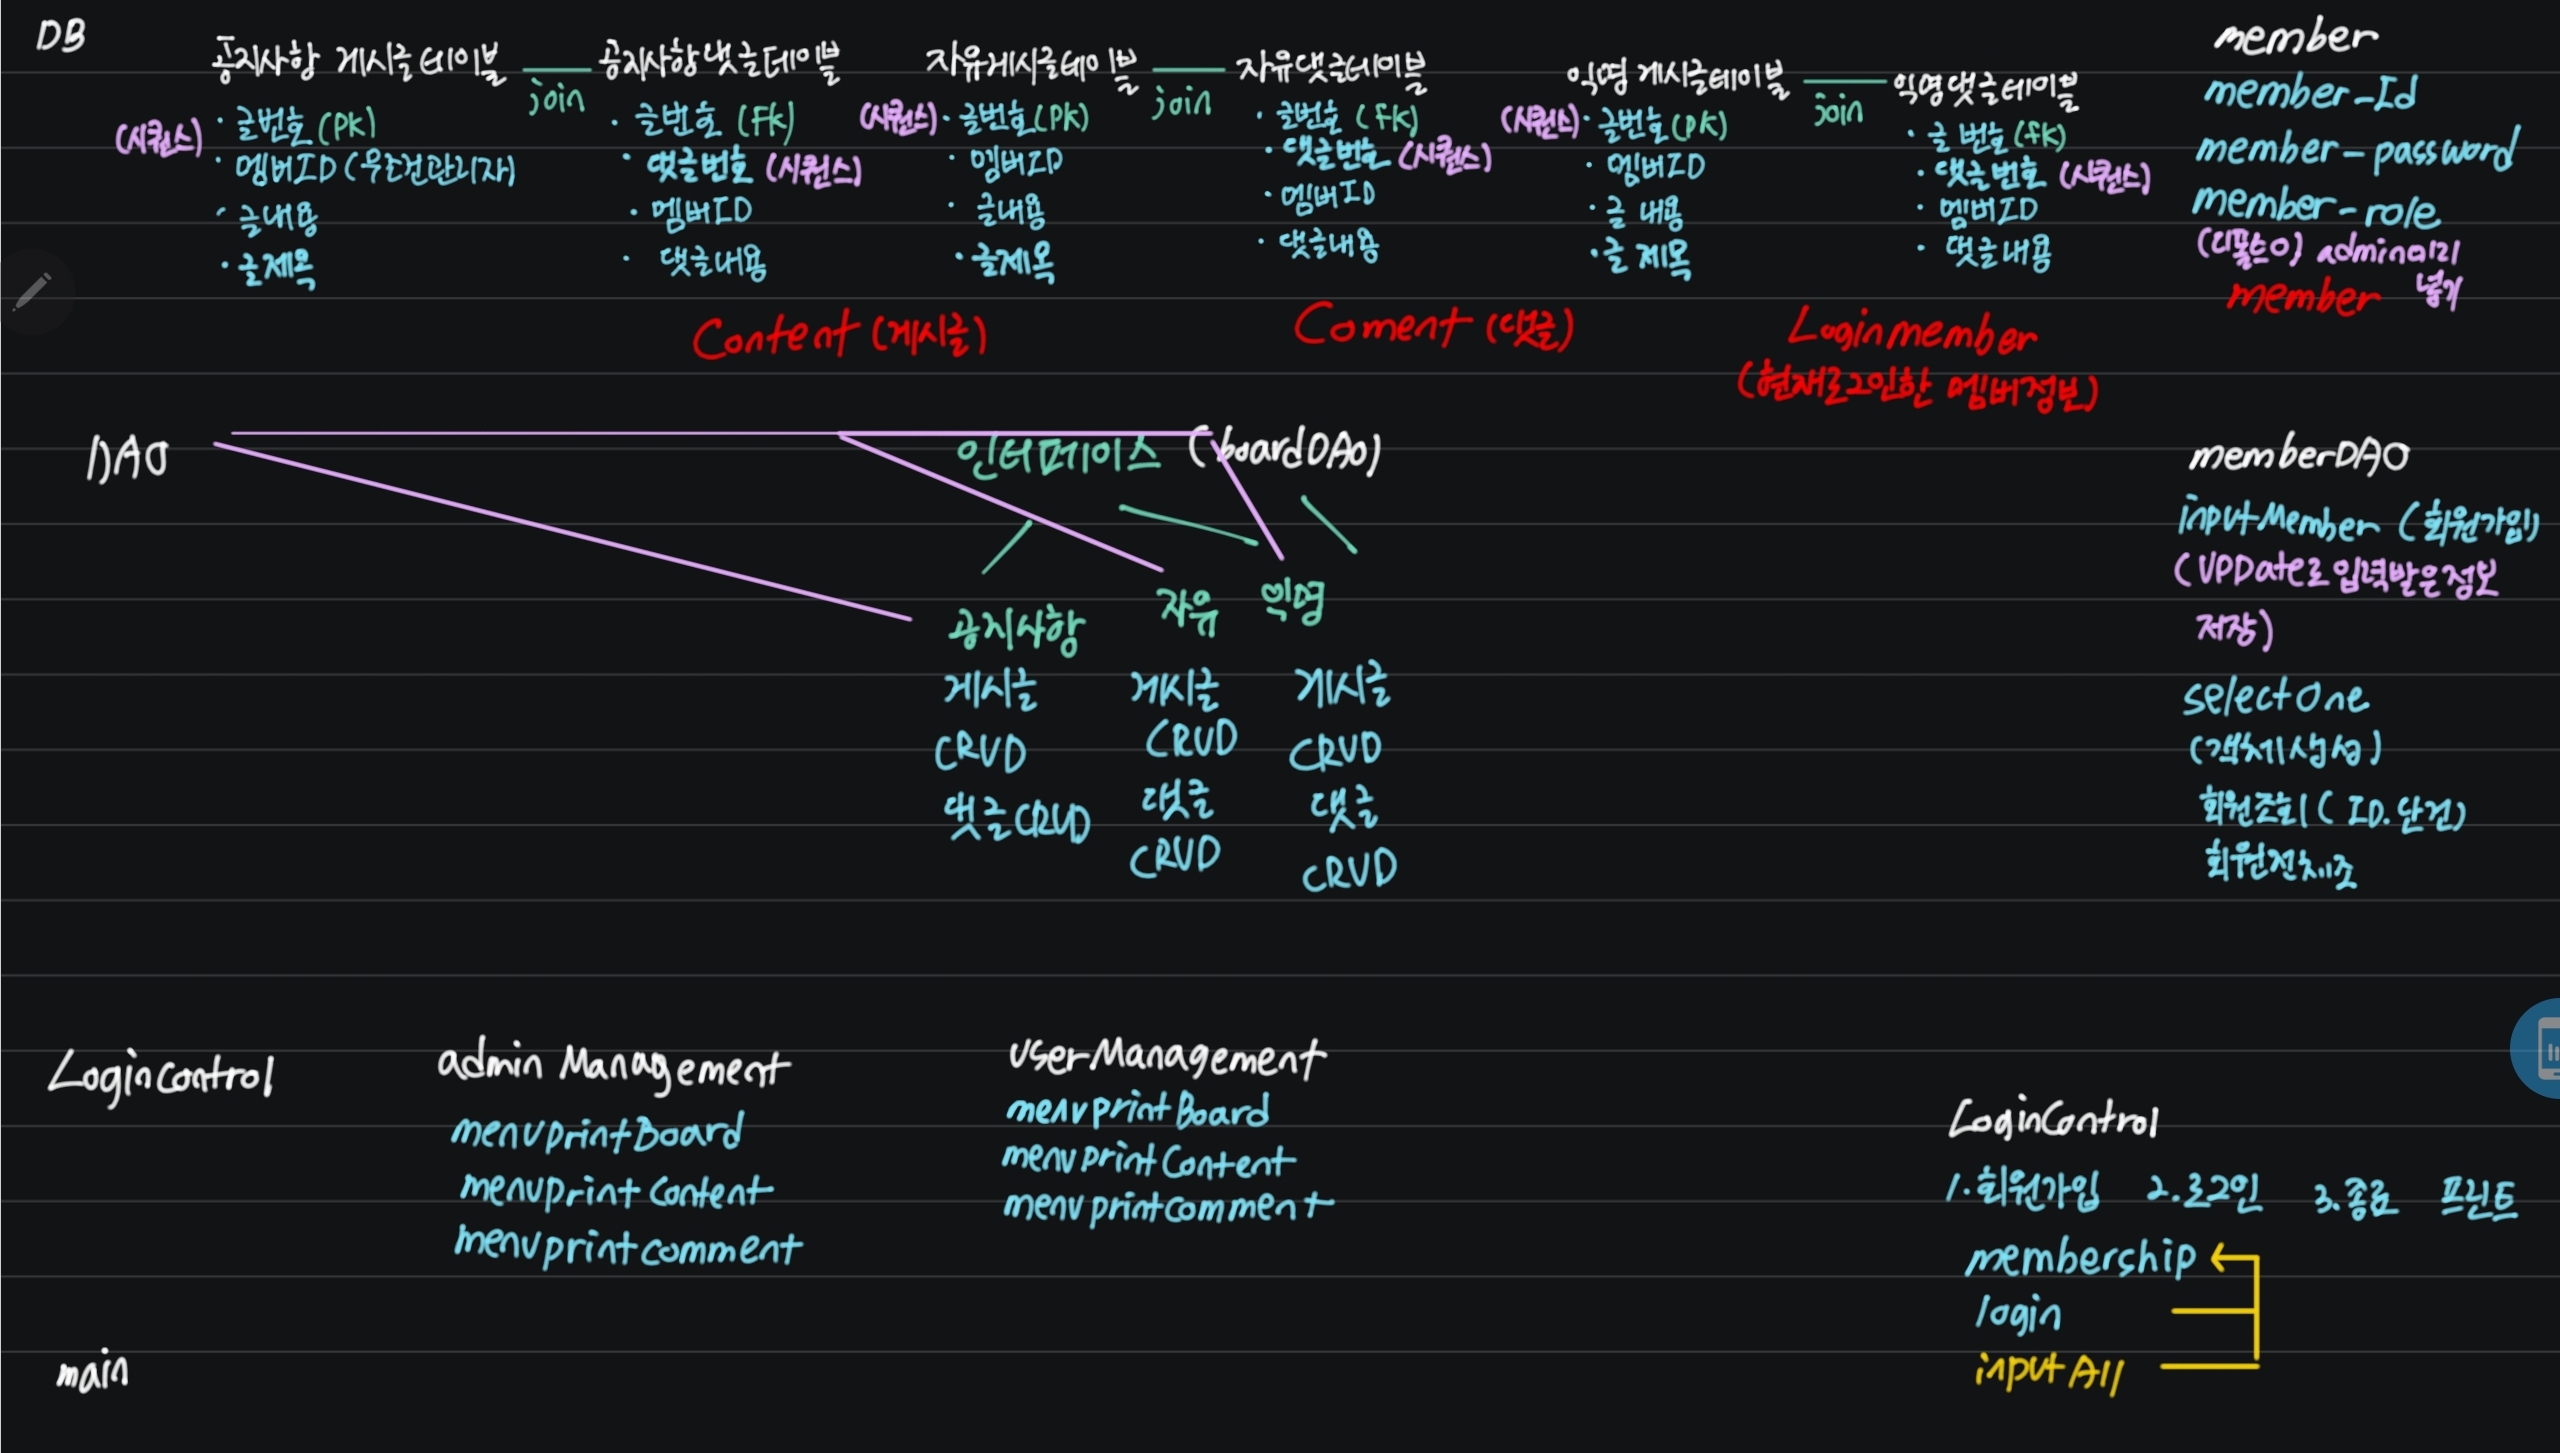 DB
공지사항 게시글테이블
(시퀀스)
· 글번호 (PK)
· 멤버ID (무조건관리자)
· 글내용
· 글제목
join
공지사항댓글테이블
· 글번호 (FK)
· 댓글번호 (시퀀스)
· 멤버ID
· 댓글내용
자유게시글테이블
(시퀀스) · 글번호(PK)
· 멤버ID
· 글내용
· 글제목
join
자유댓글테이블
· 글번호 (FK)
· 댓글번호 (시퀀스)
· 멤버ID
· 댓글내용
익명게시글테이블
(시퀀스) · 글번호(PK)
· 멤버ID
· 글 내용
· 글 제목
join
익명댓글테이블
· 글 번호 (FK)
· 댓글번호 (시퀀스)
· 멤버ID
· 댓글내용
member
member-Id
member-password
member-role
(디폴트0) admin미리
넣기
member
Content (게시글)
Coment (댓글)
Loginmember
(현재로그인한 멤버정보)
DAO
인터페이스 (boardDAO)
공지사항
게시글
CRUD
댓글CRUD
자유
게시글
CRUD
댓글
CRUD
익명
게시글
CRUD
댓글
CRUD
memberDAO
inputMember (회원가입)
(UPDate로입력받은정보
저장)
selectOne
(객체생성)
회원조회 (ID.단건)
회원전체조
Logincontrol
admin Management
menuprintBoard
menuprint Content
menuprintcomment
userManagement
menuprintBoard
menuprintContent
menuprintcomment
LoginControl
1.회원가입 2.로그인 3.종료 프린트
membership
login
inputAll
main